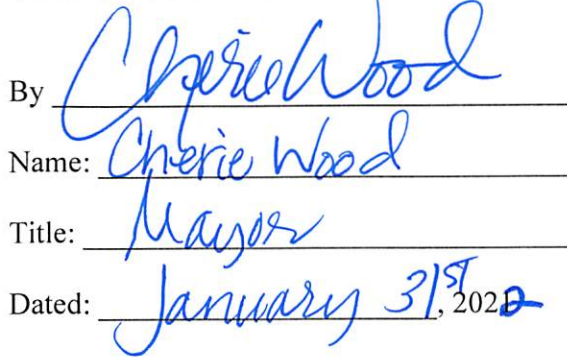 By Cherie Wood
Name: Cherie Wood
Title: Mayor
Dated: January 31st, 2022